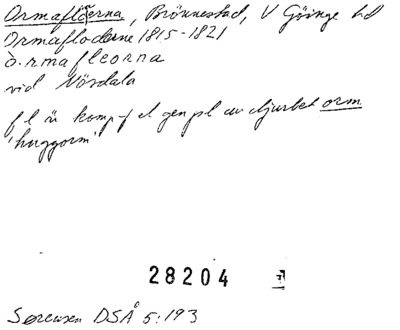 Ormaflöerna, Brönnestad, V Göinge hd
Ormafloderne 1815-1821
ò.rmafleorna
vid Nösdala
f l är komp-f el gen pl av djurbet orm
'huggorm'
28204
Sørensen DSÅ 5:193